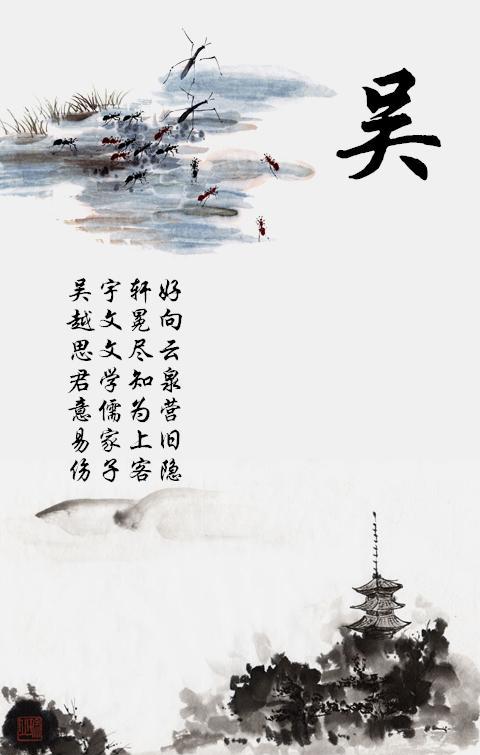 吴
吴越思君意易伤
宇文文学儒家子
轩冕尽知为上客
好向云泉营旧隐